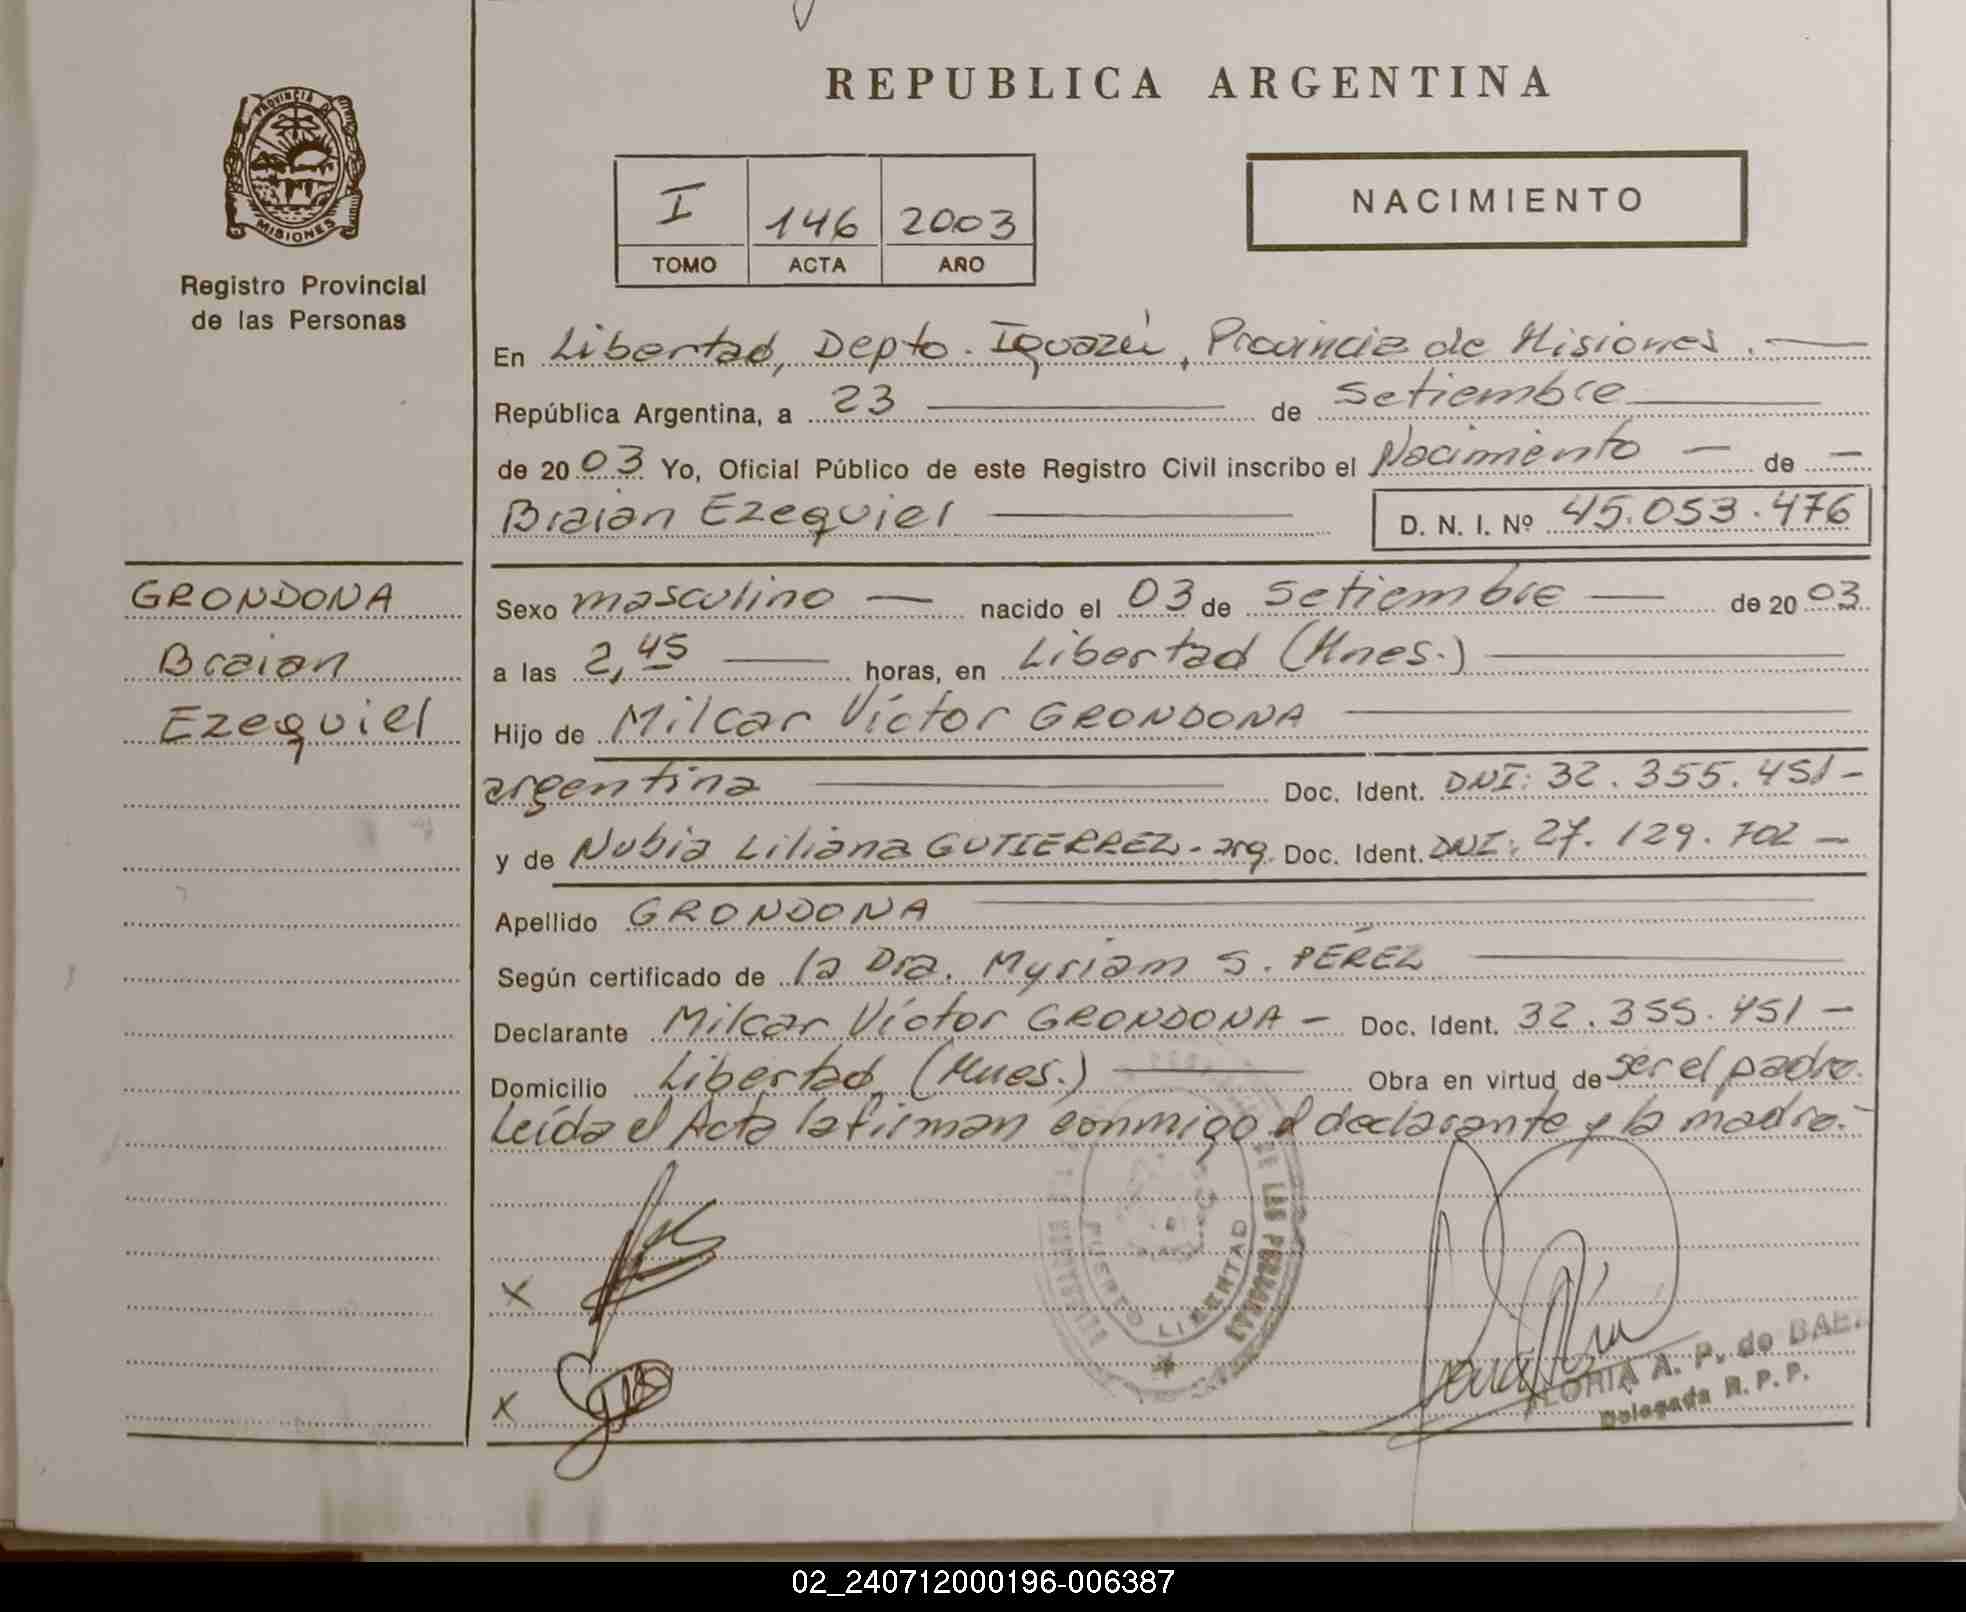 REPUBLICA ARGENTINA
PROVINCIA DE
MISIONES
Registro Provincial
de las Personas
I 146 2003
TOMO ACTA AÑO
NACIMIENTO
En Libertad, Depto. Iguazú, Provincia de Misiones.
República Argentina, a 23 de Setiembre
de 2003 Yo, Oficial Público de este Registro Civil inscribo el Nacimiento de
Braian Ezequiel D. N. I. Nº 45.053.476
GRONDONA
Braian
Ezequiel
Sexo masculino nacido el 03 de Setiembre de 2003
a las 2,45 horas, en Libertad (Mnes.)
Hijo de Milcar Víctor GRONDONA
argentina Doc. Ident. DNI: 32.355.451-
y de Nubia Liliana GUTIERREZ - arg. Doc. Ident. DNI: 27.129.702 -
Apellido GRONDONA
Según certificado de la Dra. Myriam S. PÉREZ
Declarante Milcar Víctor GRONDONA - Doc. Ident. 32.355.451 -
Domicilio Libertad (Mnes.) Obra en virtud de ser el padre.
Leída el Acta la firman conmigo el declarante y la madre.-
X
X
DE LAS PERSONAS
PUERTO LIBERTAD
GLORIA A. P. de BAEZ
Delegada R. P. P.
02_240712000196-006387